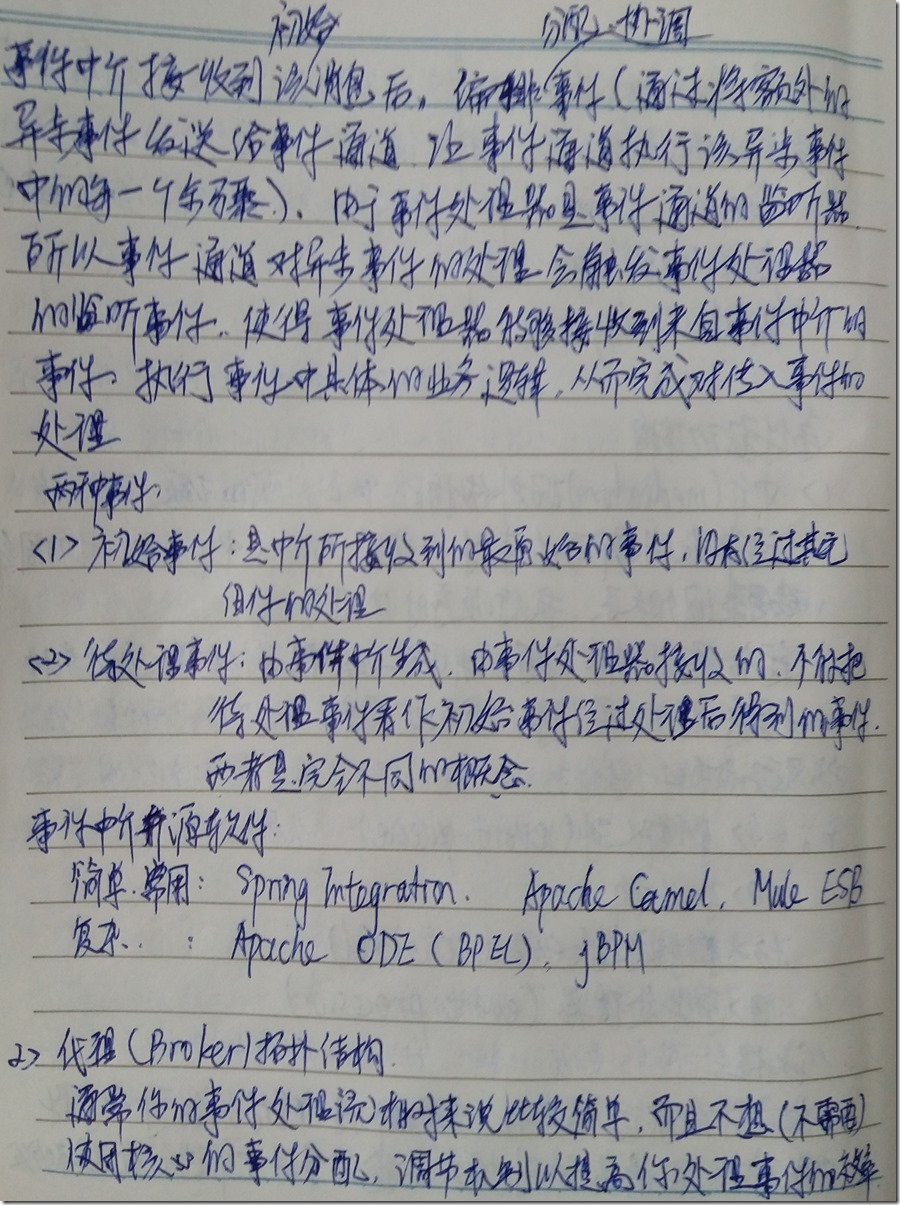 初始 分配、协调
事件中介接收到该消息后，编排事件（通过将额外的
异步事件发送给事件通道，让事件通道执行该异步事件
中的每一个步骤）。由于事件处理器是事件通道的监听器
所以事件通道对异步事件的处理会触发事件处理器
的监听事件。使得事件处理器能够接收到来自事件中介的
事件，执行事件中具体的业务逻辑，从而完成对传入事件的
处理
两种事件：
<1> 初始事件：是中介所接收到的最原始的事件，没有经过其它
组件的处理
<2> 待处理事件：由事件中介生成，由事件处理器接收的，不能把
待处理事件看作初始事件经过处理后得到的事件，
两者是完全不同的概念。
事件中介开源软件：
简单、常用： Spring Integration. Apache Camel, Mule ESB
复杂.. ： Apache ODE（BPEL）、jBPM
2> 代理（Broker）拓扑结构
通常你的事件处理流相对来说比较简单，而且不想（不需要）
使用核心的事件分配，调节机制以提高你处理事件的效率